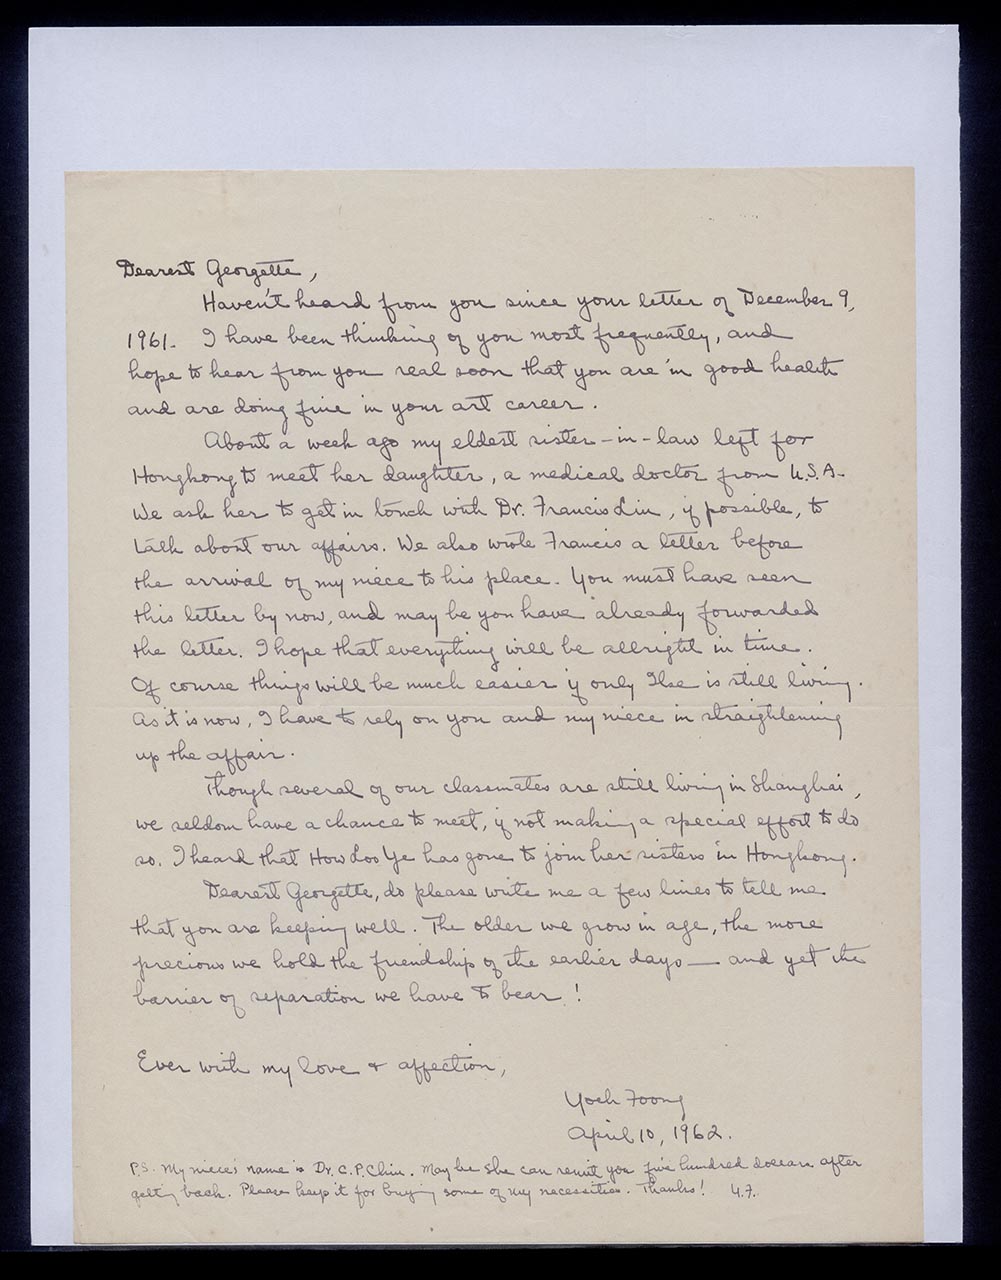 Dearest Georgette,
Haven't heard from you since your letter of December 9,
1961. I have been thinking of you most frequently, and
hope to hear from you real soon that you are in good health
and are doing fine in your art career.
About a week ago my eldest sister-in-law left for
Hongkong to meet her daughter, a medical doctor from U.S.A.
We ask her to get in tonch with Dr. Francis Lin, if possible, to
talk about our affairs. We also wrote Francis a letter before
the arrival of my niece to his place. You must have seen
this letter by now, and may be you have already forwarded
the letter. I hope that everything will be allright in time.
Of course things will be much easier if only Ilse is still living.
As it is now, I have to rely on you and my niece in straightening
up the affair.
Though several of our classmates are still living in Shanghai,
we seldom have a chance to meet, if not making a special effort to do
so. I heard that How Loo Ye has gone to join her sisters in Hongkong.
Dearest Georgette, do please write me a few lines to tell me
that you are keeping well. The older we grow in age, the more
precious we hold the friendship of the earlier days — and yet the
barrier of separation we have to bear!
Ever with my love & affection,
Yoeh Foong
April 10, 1962.
P.S. My niece's name is Dr. C. P. Chiu. May be she can remit you five hundred dollars after
getting back. Please keep it for buying some of my necessities. Thanks! Y.F.